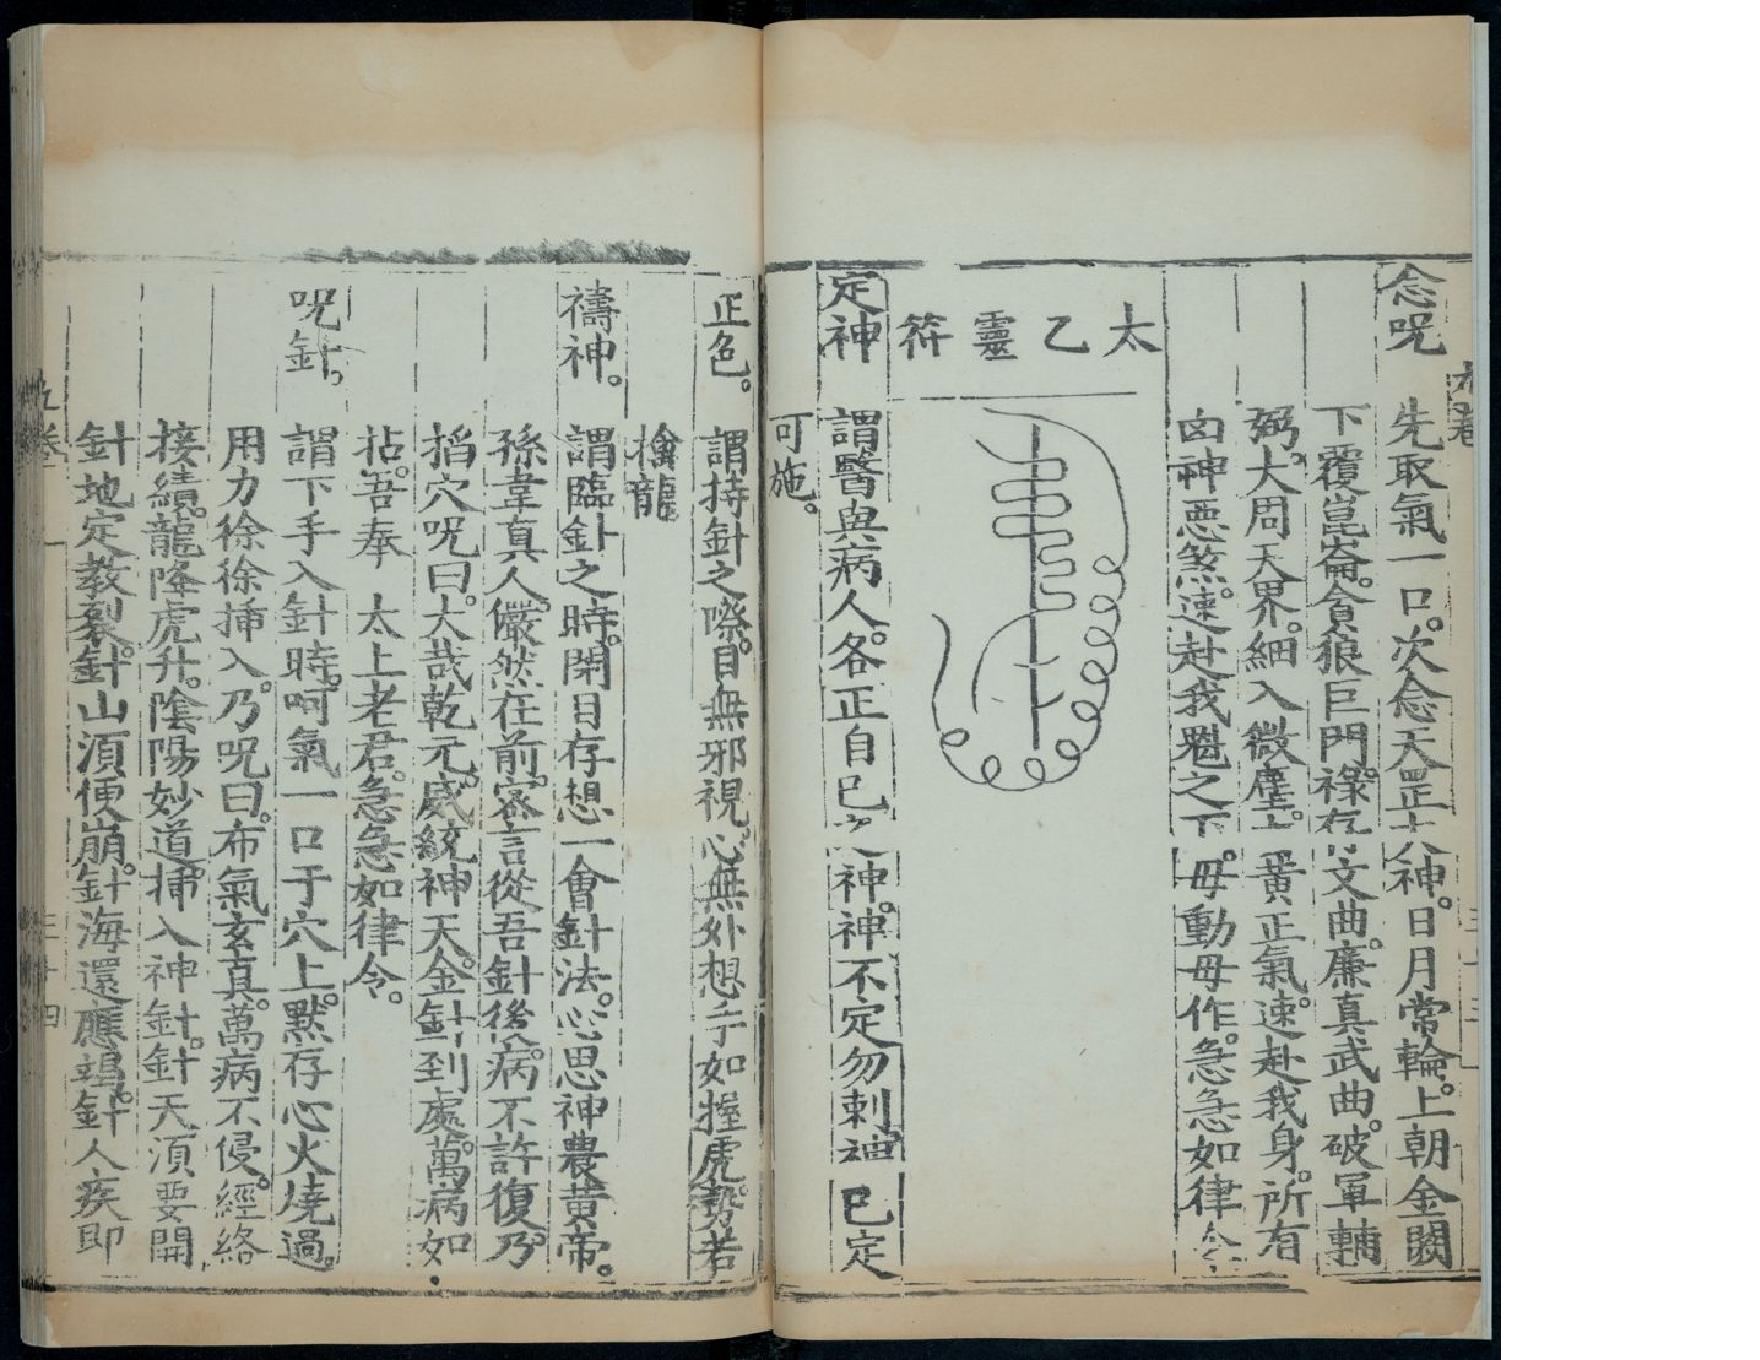 念呪
先取氣一口。次念天罡大神。日月常輪。上朝金闕
下覆崑崙。貪狼巨門。祿存文曲。廉真武曲。破軍輔
弼。大周天界。細入微塵。黃正氣。速赴我身。所有
凶神惡煞。速赴我魁之下。毋動毋作。急急如律令
太乙靈符
定神
謂醫與病人。各正自已之神。神不定勿刺。神已定
可施。
正色。
謂持針之際。目無邪視。心無外想。手如握虎。勢若
擒龍。
禱神。
謂臨針之時。閉目存想一會針法。心思神農黃帝。
孫韋真人。儼然在前。密言從吾針後。病不許復。乃
搯穴呪曰。大哉乾元。威統神天。金針到處。萬病如
拈。吾奉 太上老君。急急如律令。
呪針。
謂下手入針時。呵氣一口于穴上。默存心火燒過。
用力徐徐揷入。乃呪曰。布氣玄真。萬病不侵。經絡
接續。龍降虎升。陰陽妙道。揷入神針。針天須要開
針地定教裂。針山須便崩。針海還應竭。針人疾即
五卷 三十四